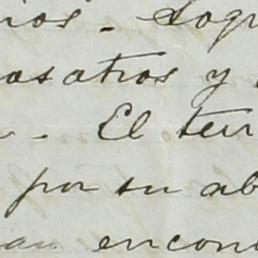 ios. Logr
osotros y
. El terr
por su ab
an encon